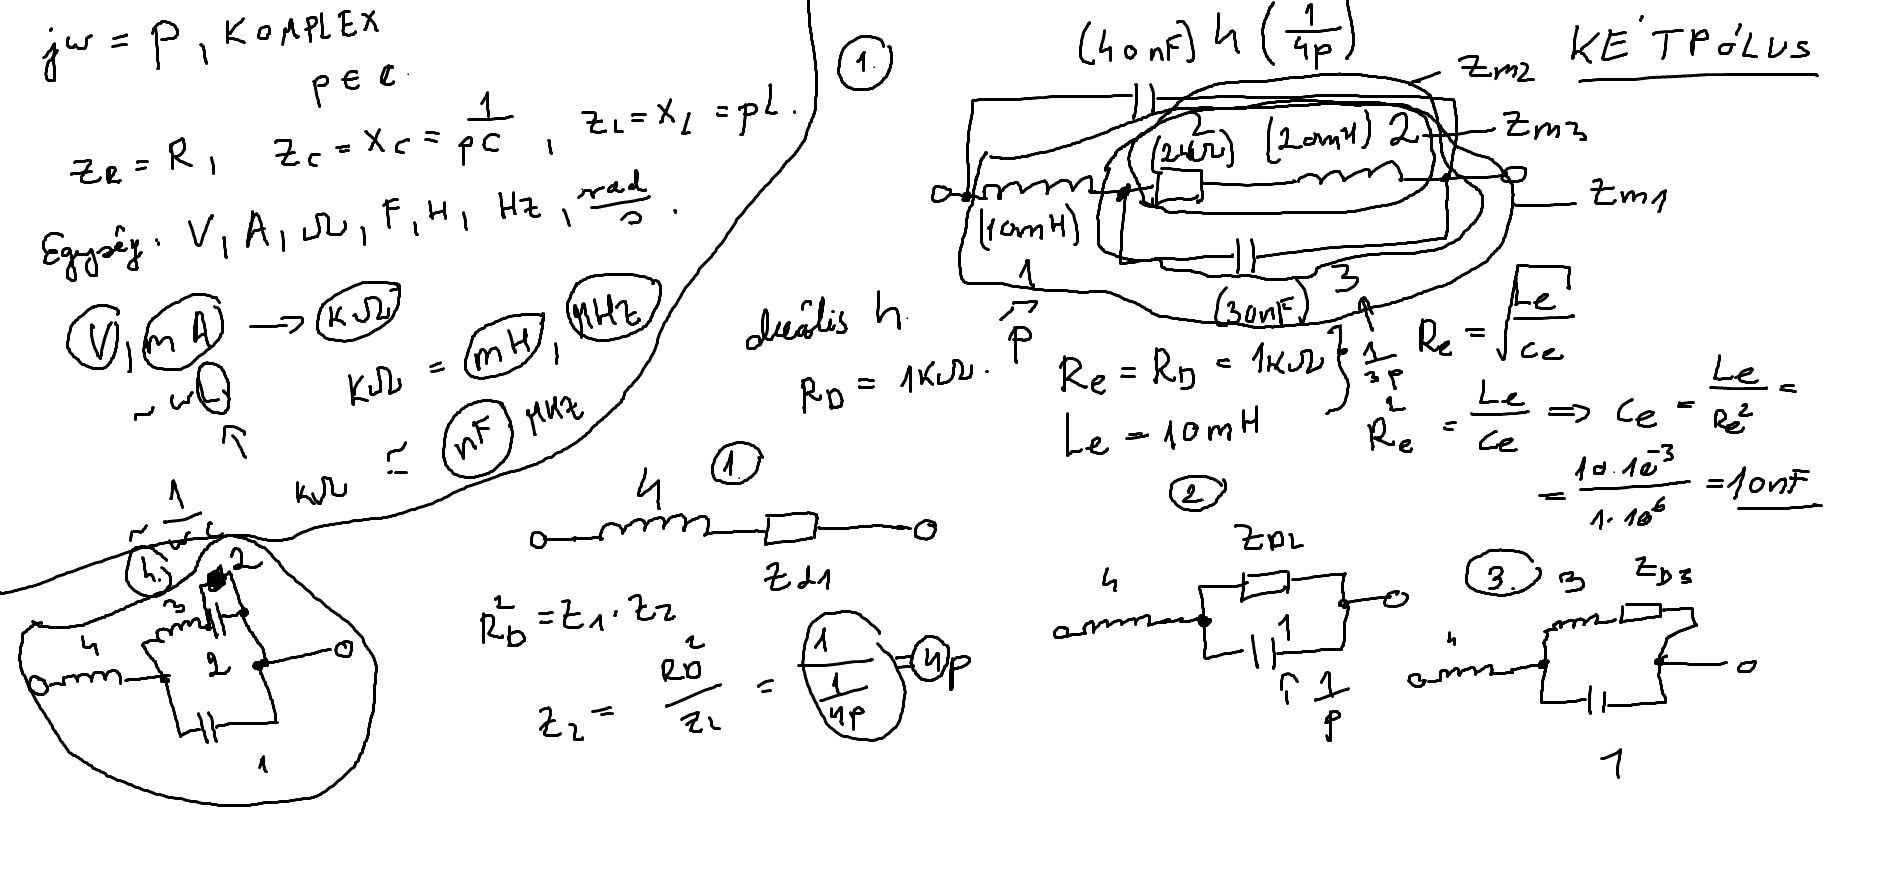 jω = p, KOMPLEX
p ∈ C.
Z_R = R, Z_C = X_C = 1/pC, Z_L = X_L = pL.
Egység: V, A, Ω, F, H, Hz, rad/s.
V, mA → kΩ
kΩ = mH, MHz
~ ωL
kΩ ≃ nF MHz
~ 1/ωC
1.
(40nF) 4 (1/4p)
KÉTPÓLUS
Zm2
Zm3
Zm1
2
(2kΩ) (20mH) 2
(10mH)
1
p
(30nF) 3
1/3p
duális 4.
R_D = 1kΩ.
Re = R_D = 1kΩ
Le = 10mH
Re = √(Le/Ce)
Re² = Le/Ce ⇒ Ce = Le/Re² =
= 10·10⁻³/1·10⁶ = 10nF
1.
4
Zd1
R_D² = Z1·Z2
Z2 = R_D²/Z2 = 1/(1/4p) = 4p
2
4
Z_D2
1
1/p
3.
4
3
Z_D3
1
4.
4
3
2
2
1